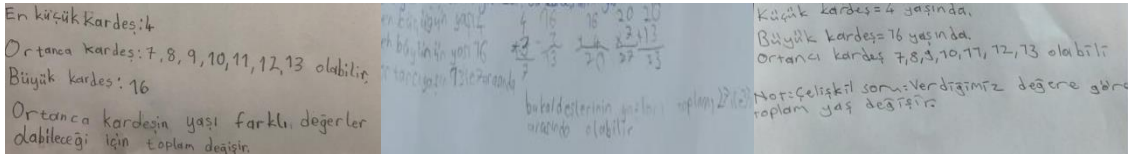 En küçük kardeş:4
Ortanca kardeş: 7, 8, 9, 10, 11, 12, 13 olabilir.
Büyük kardeş: 16
Ortanca kardeşin yaşı farklı değerler
olabileceği için toplam değişir.
en büyüğün yaşı 16
4 16 16 20 20
+3 -3 +4 +7 +13
7 13 20 27 33
bu kardeşlerinin yaşları toplamı 27 ile
arasında olabilir
Küçük kardeş=4 yaşında.
Büyük kardeş=16 yaşında.
Ortancı kardeş 7,8,9,10,11,12,13 olabili
Not:Çelişkil soru:Verdiğimiz değere göre
toplam yaş değişir.